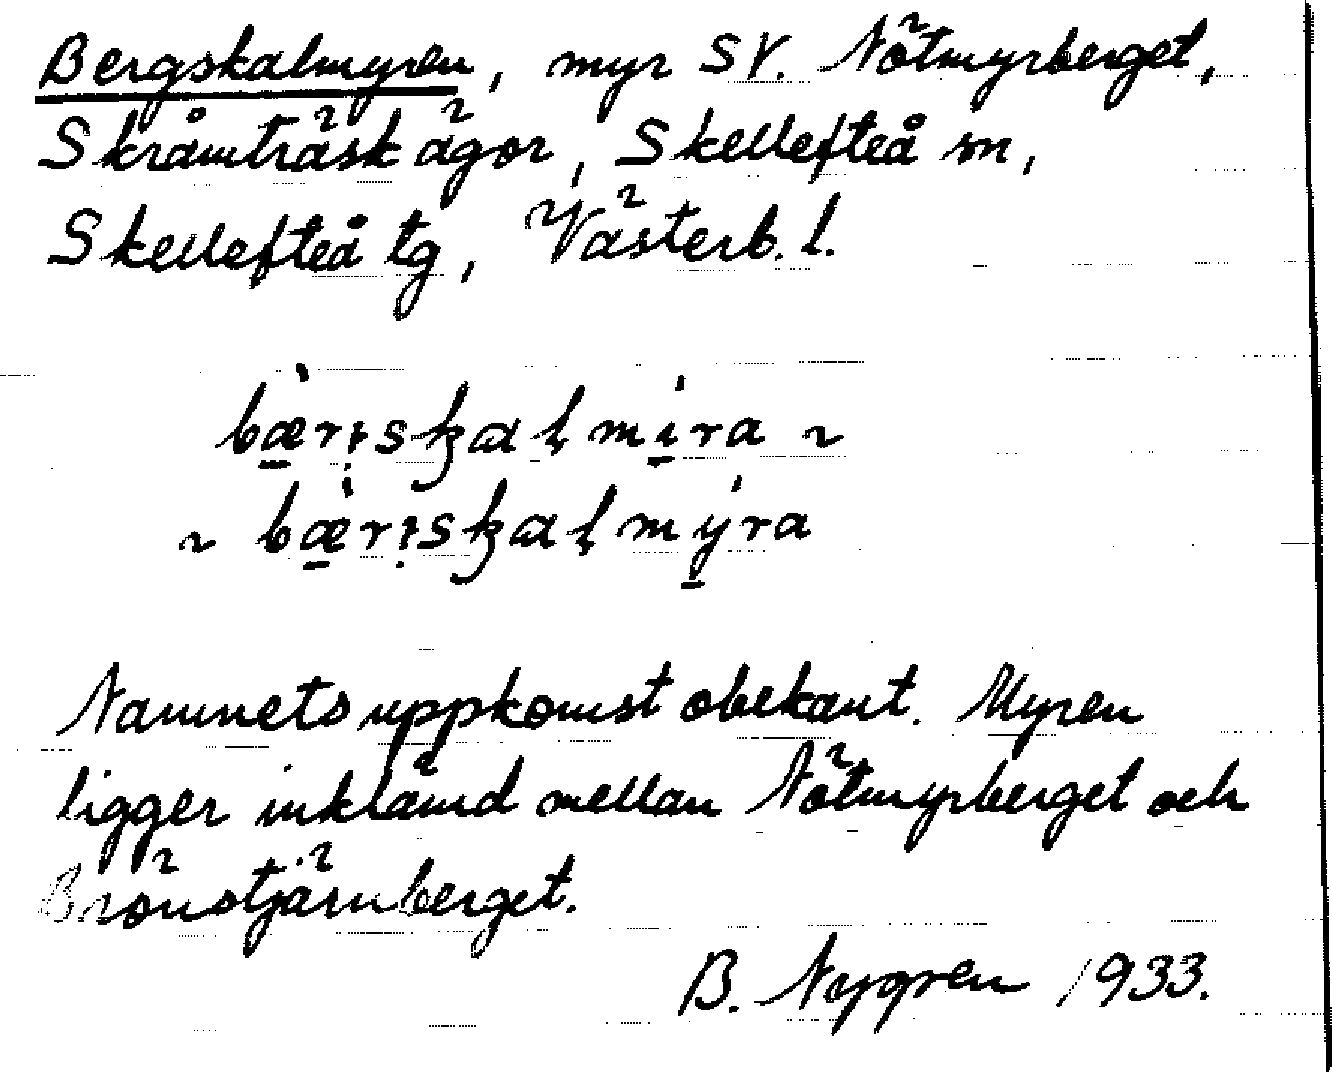 Bergskalmyren, myr SV. Nötmyrberget,
Skråmträsk ägor, Skellefteå sn,
Skellefteå tg, Västerb. l.
Namnets uppkomst obekant. Myren
ligger inklämd mellan Nötmyrberget och
Brönstjärnberget.
B. Nygren 1933.